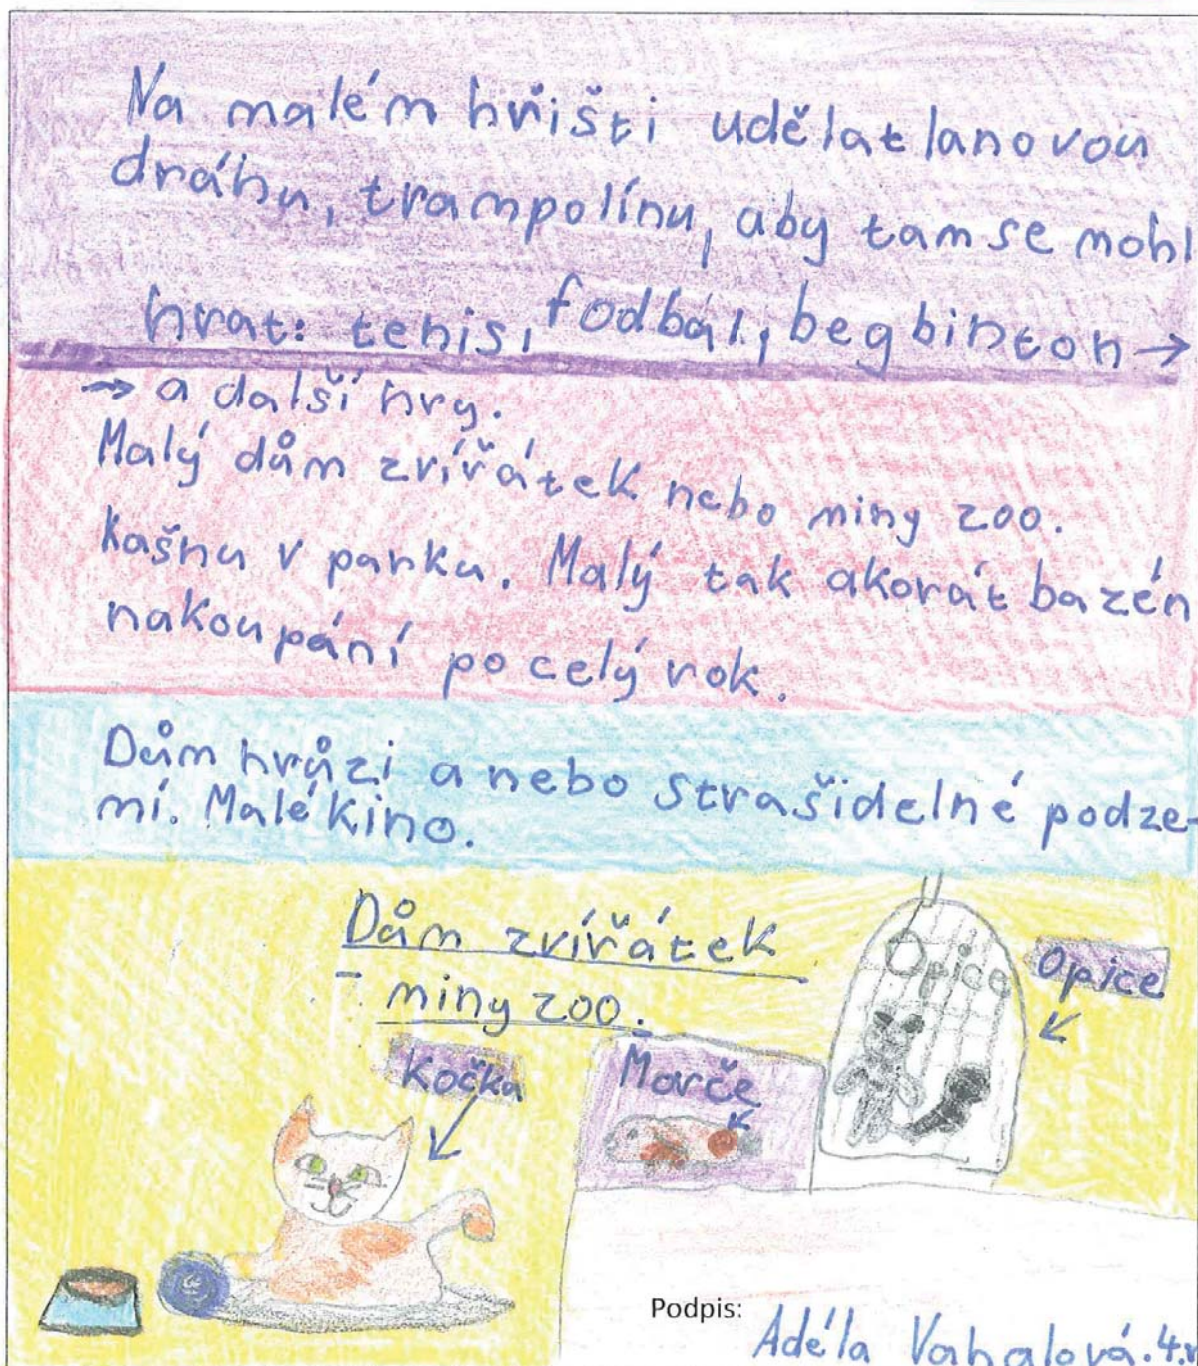 Na malém hřišti udělat lanovou
dráhu, trampolínu, aby tam se mohl
hrat: tenis, fodbál, begbinton →
→ a další hry.
Malý dům zvířátek nebo miny zoo.
Kašnu v parku. Malý tak akorát bazén
nakoupání po celý rok.
Dům hrůzi a nebo strašidelné podze-
mí. Malé kino.
Dům zvířátek
- miny zoo.
Opice
Opice
Kočka
Morče
Podpis:
Adéla Vahalová. 4.